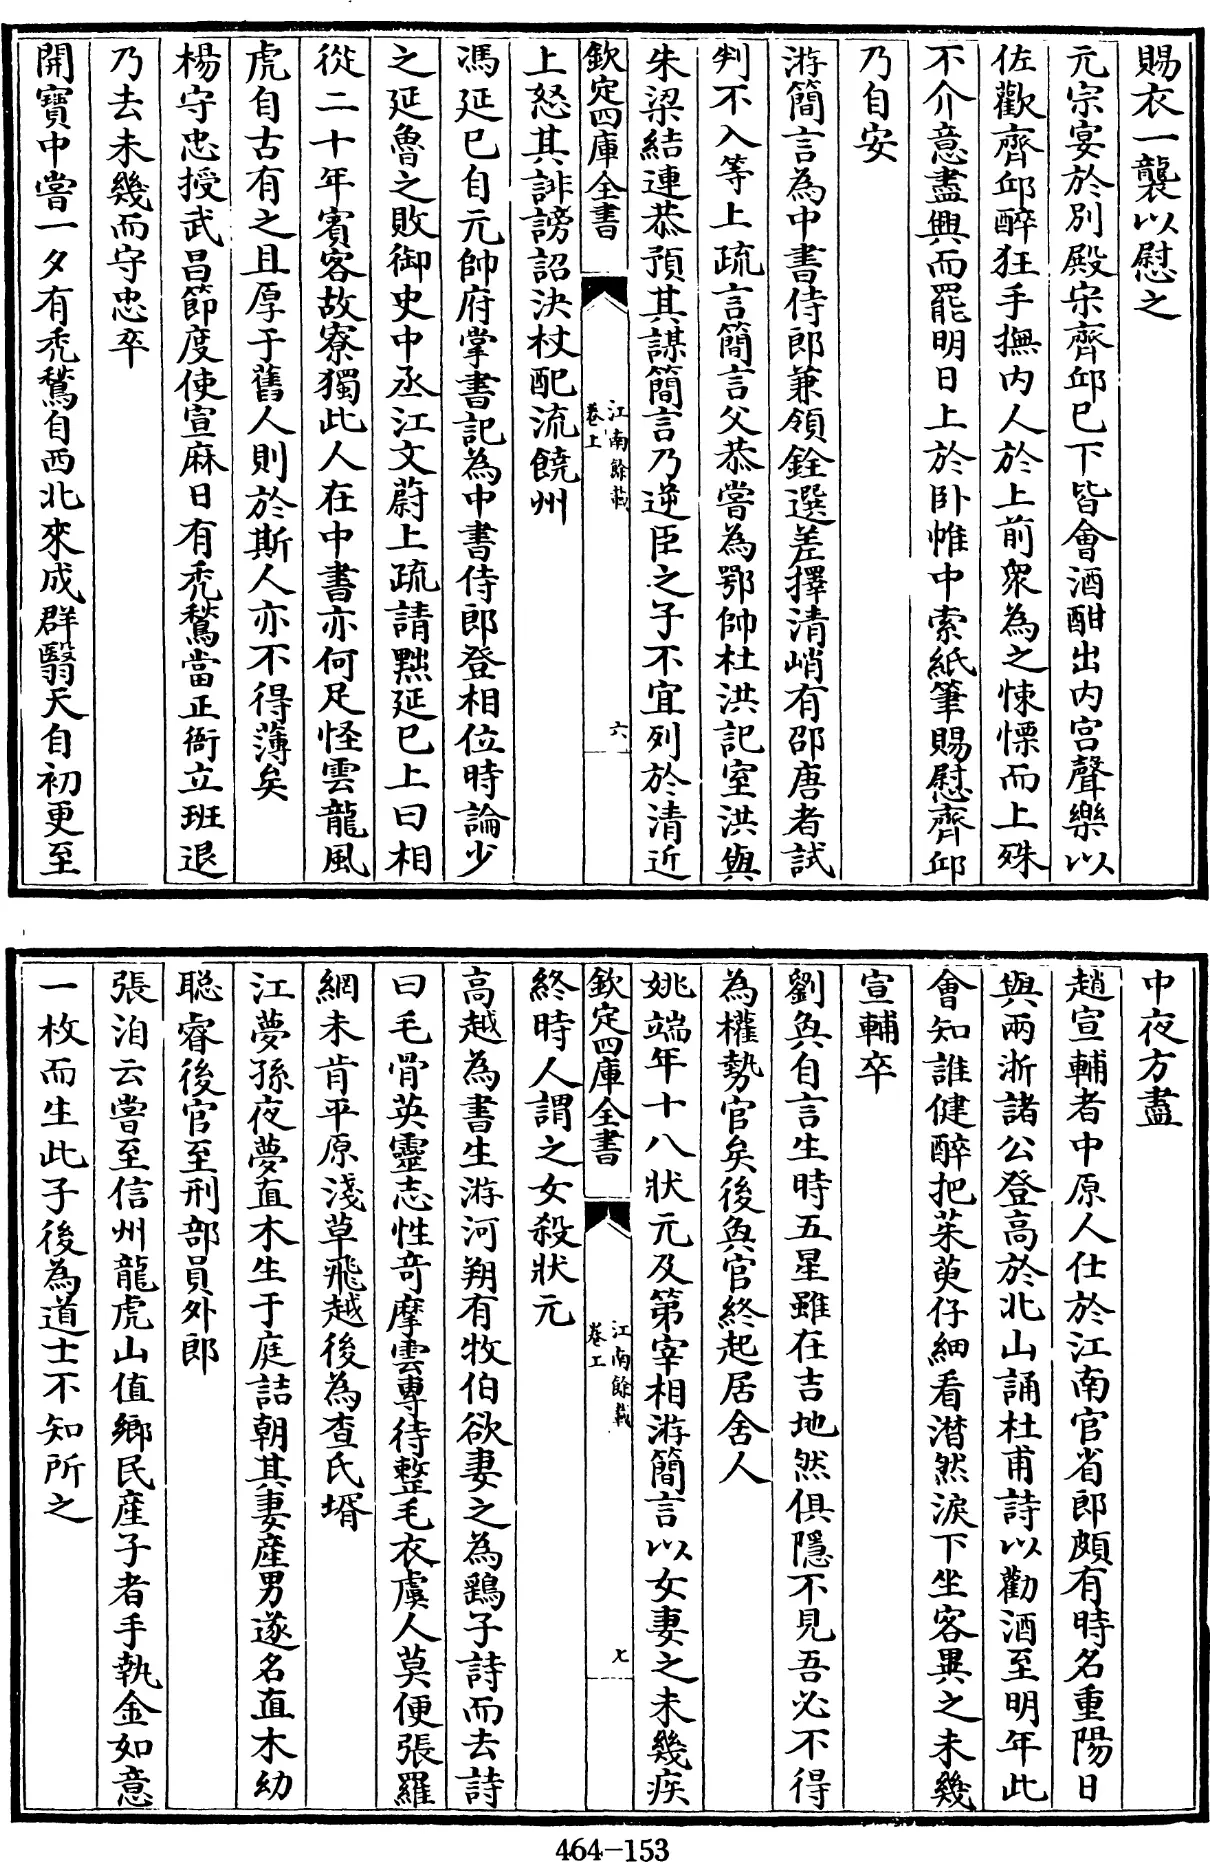 賜衣一襲以慰之
元宗宴於別殿宋齊邱已下皆會酒酣出内宫聲樂以
佐歡齊邱醉狂手撫内人於上前衆為之悚慄而上殊
不介意盡興而罷明日上於卧帷中索紙筆賜慰齊邱
乃自安
游簡言為中書侍郎兼領銓選差擇清峭有邵唐者試
判不入等上疏言簡言父恭嘗為鄂帥杜洪記室洪與
朱梁結連恭預其謀簡言乃逆臣之子不宜列於清近
欽定四庫全書
江南餘載
卷上
六
上怒其誹謗詔決杖配流饒州
馮延巳自元帥府掌書記為中書侍郎登相位時論少
之延魯之敗御史中丞江文蔚上疏請黜延巳上曰相
從二十年賓客故寮獨此人在中書亦何足怪雲龍風
虎自古有之且厚于舊人則於斯人亦不得薄矣
楊守忠授武昌節度使宣麻日有禿鶖當正衙立班退
乃去未幾而守忠卒
開寶中嘗一夕有禿鶖自西北來成群翳天自初更至
中夜方盡
趙宣輔者中原人仕於江南官省郎頗有時名重陽日
與兩浙諸公登高於北山誦杜甫詩以勸酒至明年此
會知誰健醉把茱萸仔細看潸然淚下坐客異之未幾
宣輔卒
劉奐自言生時五星雖在吉地然俱隱不見吾必不得
為權勢官矣後奐官終起居舍人
姚端年十八狀元及第宰相游簡言以女妻之未幾疾
欽定四庫全書
江南餘載
卷上
七
終時人謂之女殺狀元
高越為書生游河朔有牧伯欲妻之為鷂子詩而去詩
曰毛骨英靈志性奇摩雲專待整毛衣虞人莫便張羅
網未肯平原淺草飛越後為查氏壻
江夢孫夜夢直木生于庭詰朝其妻產男遂名直木幼
聪睿後官至刑部員外郎
張洎云嘗至信州龍虎山值鄉民產子者手執金如意
一枚而生此子後為道士不知所之
464-153